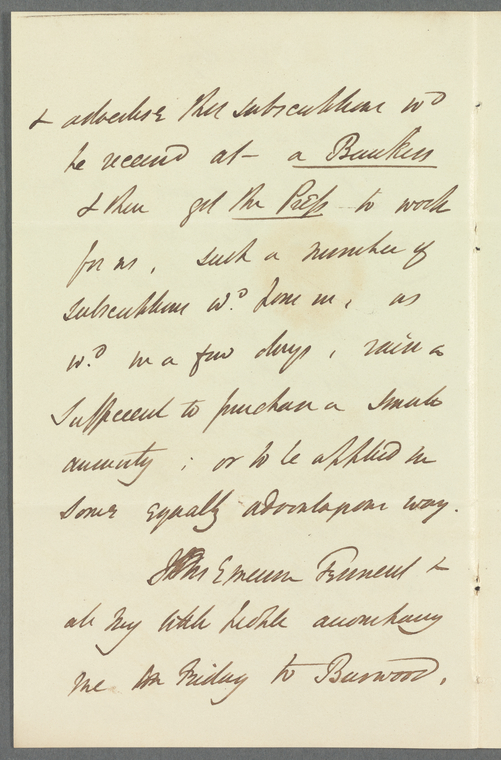 & advertise that subscriptions wd
be received at — a Bankers
& then get the Press to work
for us, such a number of
subscriptions wd. pour in, as
wd. in a few days, raise a
sufficient to purchase a small
annuity; or to be applied in
some equally advantageous way.
&
all my little people accompany
me on Friday to Burwood,